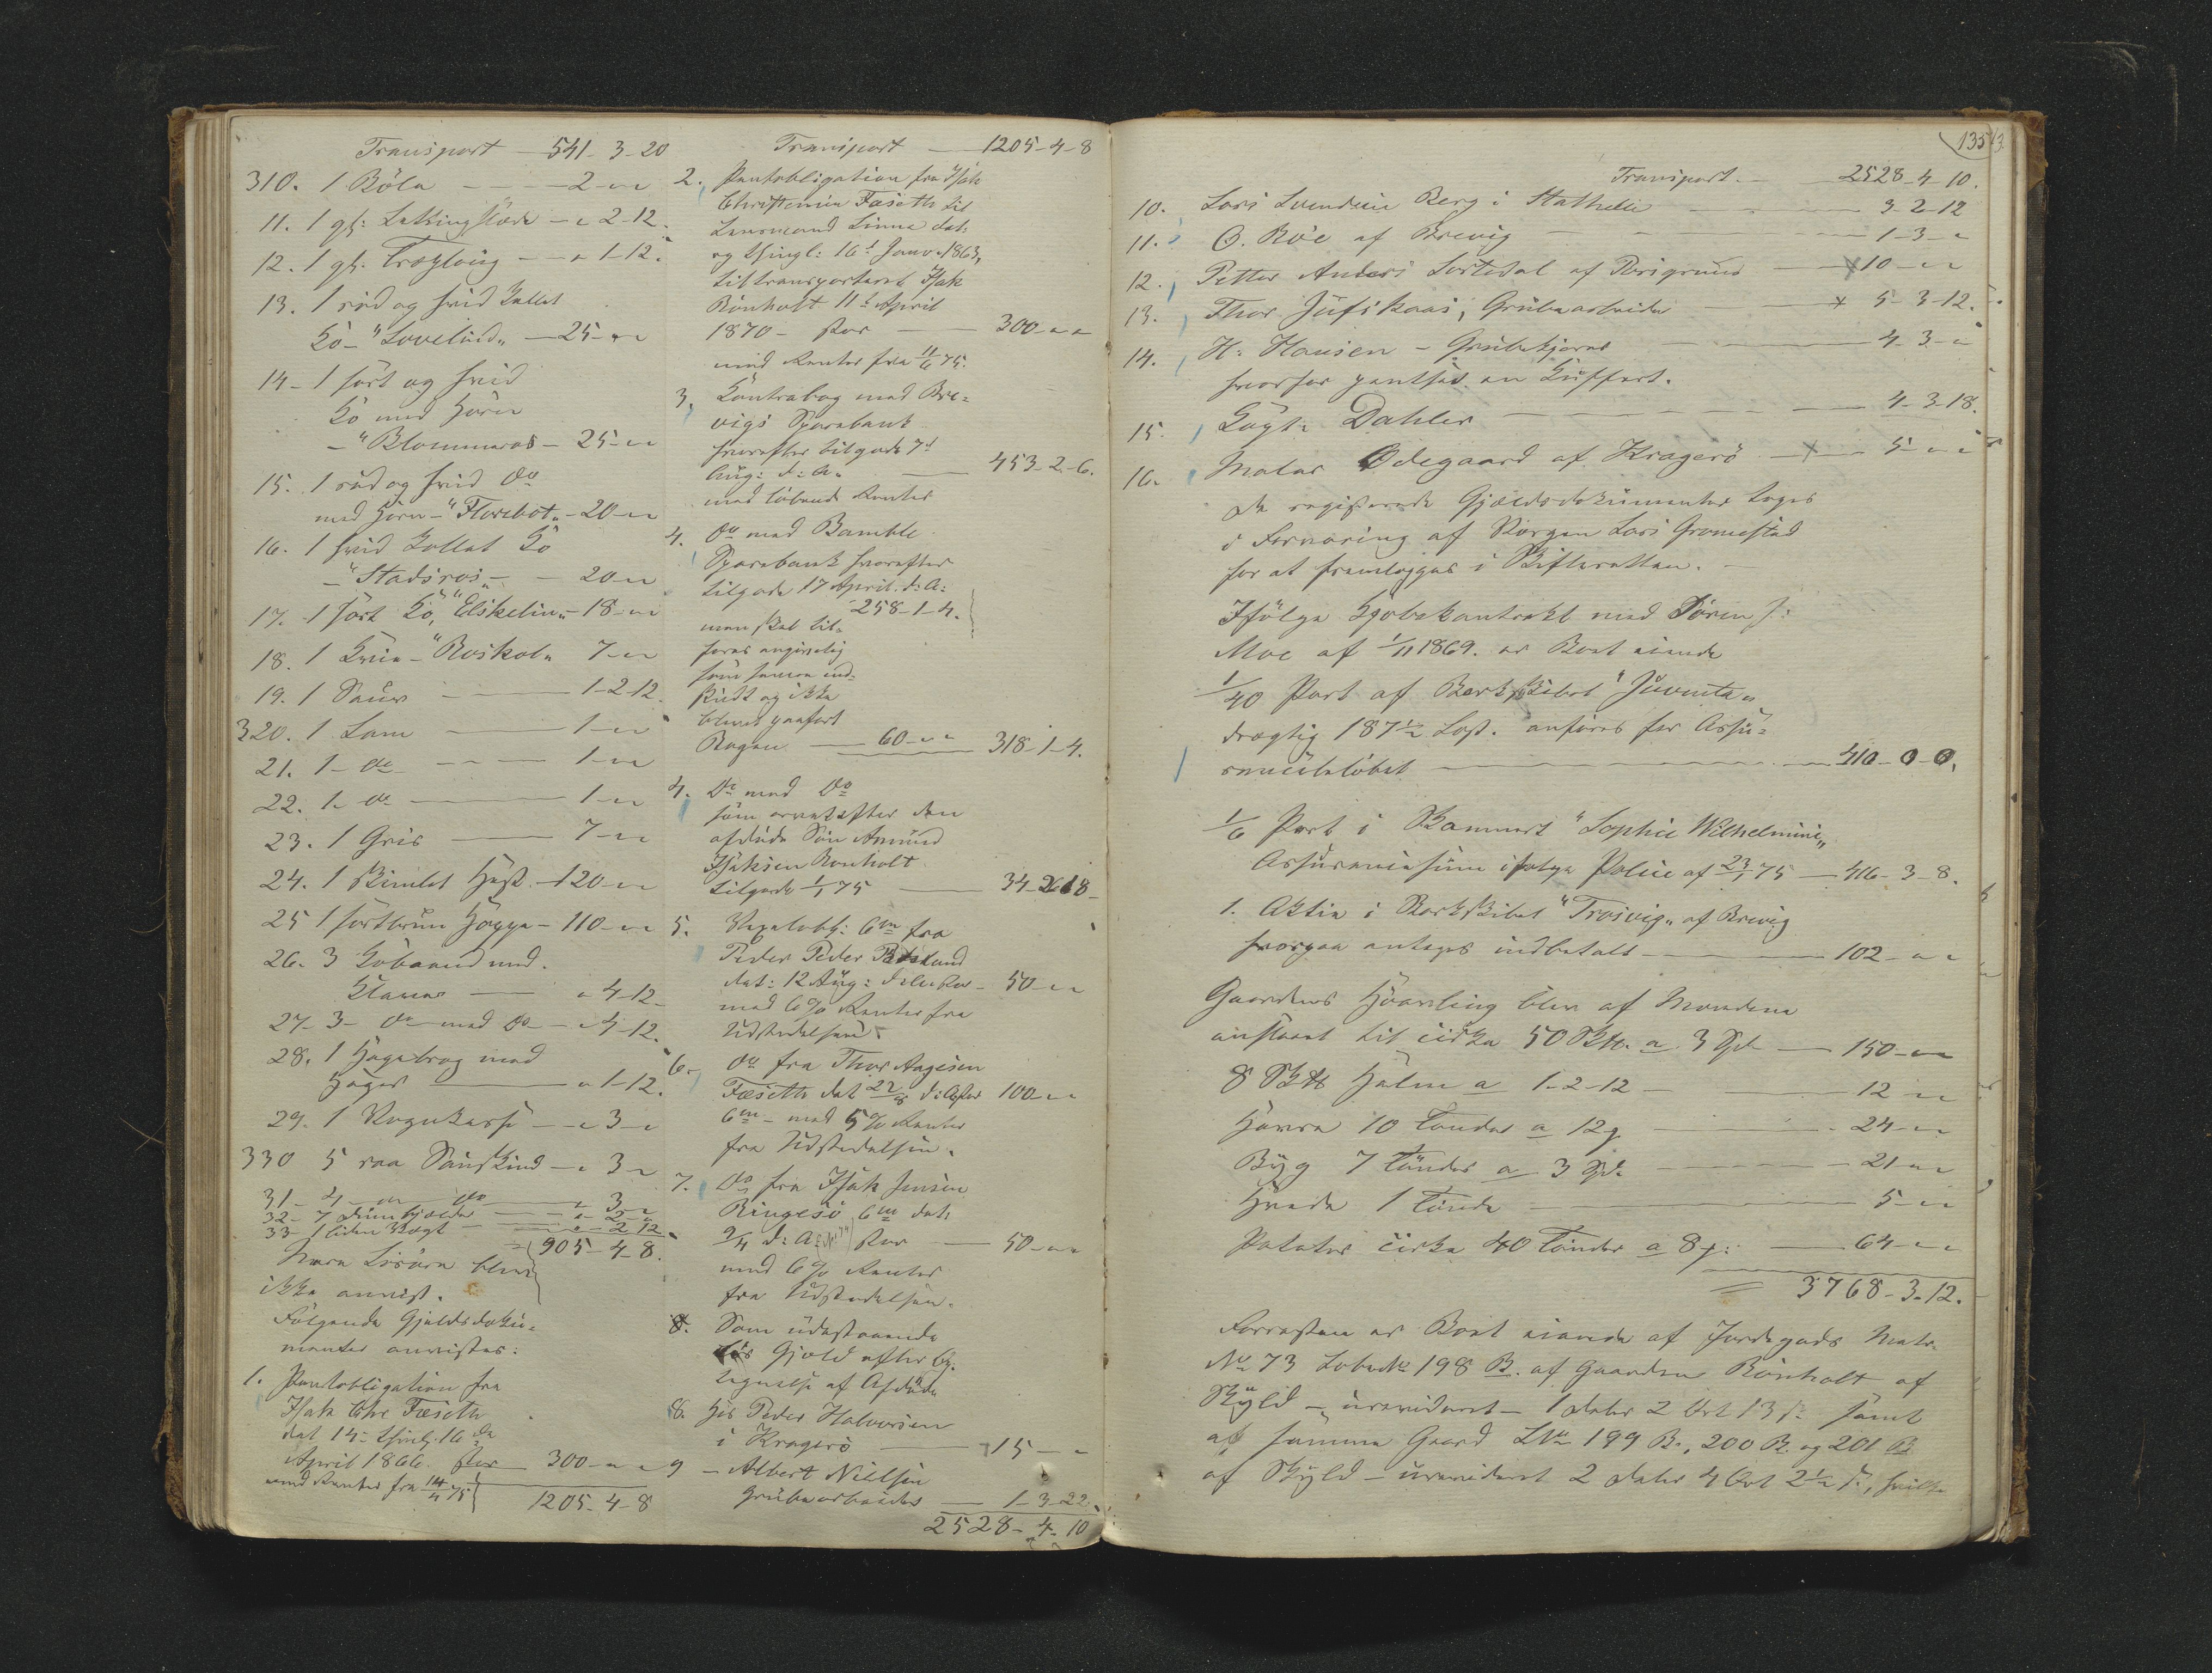 Transport - 541-3-20
310. 1 Böla - - - 2-""
11. 1 gl: - " 2-12.
12. 1 gl: Trægtöig - - " 1-12.
13. 1 röd og hvid Kollet
Ko - "Lovelind" - 25-""
14 - 1 sort og hvid
Ko med Horn
- "Blommeros - 25-""
15. 1 röd og hvid Do
med Horn - "Florebot" - 20-""
16. 1 hvid Kollet Ko
- "Stadsros" - - 20-""
17. 1 sort Ko, "Elskelin" - 18-""
18. 1 Kvie - "Roskol" 7-""
19. 1 Sau - 1-2-12.
320. 1 Lam - 1-""
21. 1 - do - - 1-""
22. 1 - do - 1-""
23. 1 Gris - 7-""
24. 1 Skimlet Hest - 120-""
25 1 sortbrun Hoppe - 110-""
26. 3 Kobaand med
Klaver - " 4-12-
27 - 3 - do med do - " 4-12.
28. 1 Hagebrog med
Hager - " 1-12.
29. 1 Vognkarsi - " 3-"
330 5 raa Sauskind - " 3-"
31 - 4 - " do - " 3-"
32 - 7 - " 2-"
33 - 1 liden Vægt - " 2 12
= 905-4-8.
Mere Lösöre blev
ikke anvist.
Følgende Gjeldsdoku-
menter anvistes:
1. Pantobligation fra
Isak Chr Fæseth
dat 14 - thinl. 16 de
April 1866. stor 300-""
med Renter fra 14/4 75
1205-4-8
Transport - 1205-4-8
2. Pantobligation fra Isak
Christensen Fæseth til
Lensmand Linne dat.
og thingl: 16 d Janv. 1863,
tiltransporteret Isak
Rönholt 11 d April
1870 - stor - 300-""
med Renter fra 11/6 75.
3. Kontrabog med Bre-
vigs Sparebank
hvorefter tilgode 7 d
Aug: d: A. - 453-2-6.
med löbende Renter
4. Do med Bamble
Sparebank hvorefter
tilgode 17 April d: A:
258-1-4.
men skal til-
föres angivelig
som senere ind-
skudt og ikke
bleven paafört
Bogen - 60-"" 318-1-4.
4. Do med Do
som arvet efter den
afdöde Sön Amund
Isaksen Ronholt
tilgode 1/1 75 - 34-2-18-
5. Vexelobl: 6 m fra
Peder Peder
dat: 12 Aug: - 50-""
med 6 % Renter fra
Udstedelsen
6. do fra Thor Aagesen
Fæseth dat 22/8 d: A stor 100-""
6 m - med 5 % Renter
fra Udstedelsen.
7. Do fra Isak Jensen
Ringesö 6 m dat.
9/4 d: A: stor - 50-""
med 6 % Renter
fra Udstedelsen.
8. Som udestaaende
lös Gjeld efter Op-
tegnelse af Afdöde
8. Hos Peder Halvorsen
i Kragerö - 15-"
9 - Albert Nielsen
Grubearbeider - 1-3-22.
2528-4-10
135
Transport - 2528-4-10.
10. Lars Svendsen Berg i Stathelle - 3-2-12
11. O. Röe af Brevig - 1-3-"
12. Petter Anders Lortedal af Porsgrund - x 10-""
13. Thor Jufskaas, Grubearbeider - x 5-3-12.
14. H: Hansen - Grubekjerner - 4-3-"
hvorfor pantsat en Kuffert.
15. Dahler - 4-3-18.
16. Maler Ødegaard af Kragerö - x - 5-""
De registrerede Gjældsdokumenter toges
i Forvaring af Værgen Lars Gromstad
for at fremlægges i Skifteretten. -
Ifölge Kjøbekontrakt med Sören J:
Moe af 1/11 1869. er Boet eiende
1/40 Part af Barkskibet "Juventa"
drægtig 187 1/2 Lest. anföres for Assu-
rancebelöbet - 410-0-0.
1/6 Part i Skonnert "Sophie Wilhelmine"
Assurancesum ifölge Police af 23/1 75 - 416-3-8.
1. Aktie i Barkskibet "Trosvig" af Brevig
hvorpaa antages indbetalt - 102-""
Gaardens Höavling blev af Mændene
anslaaet til cirka 50 Sk℔. a 3 Spd - 150-""
8 Sk℔ Halm a 1-2-12 - 12-""
Havre 10 Tönder a 12 ƒ - 24-""
Byg 7 Tönder a 3 Spd. - 21-""
Hvede 1 Tönde - 5-""
Poteter cirka 40 Tönder a 8 ƒ: - 64-""
= 3768-3-12.
Forresten er Boet eiende af Jordegods Matr.
No 73 Löbe No 198 B. af Gaarden Rönholt af
Skyld - urevideret - 1 Daler 2 Ort 13 s: samt
af samme Gaard L No 199 B., 200 B. og 201 B
af Skyld - urevideret 2 Daler 4 Ort 2 1/2 s:, hvilke